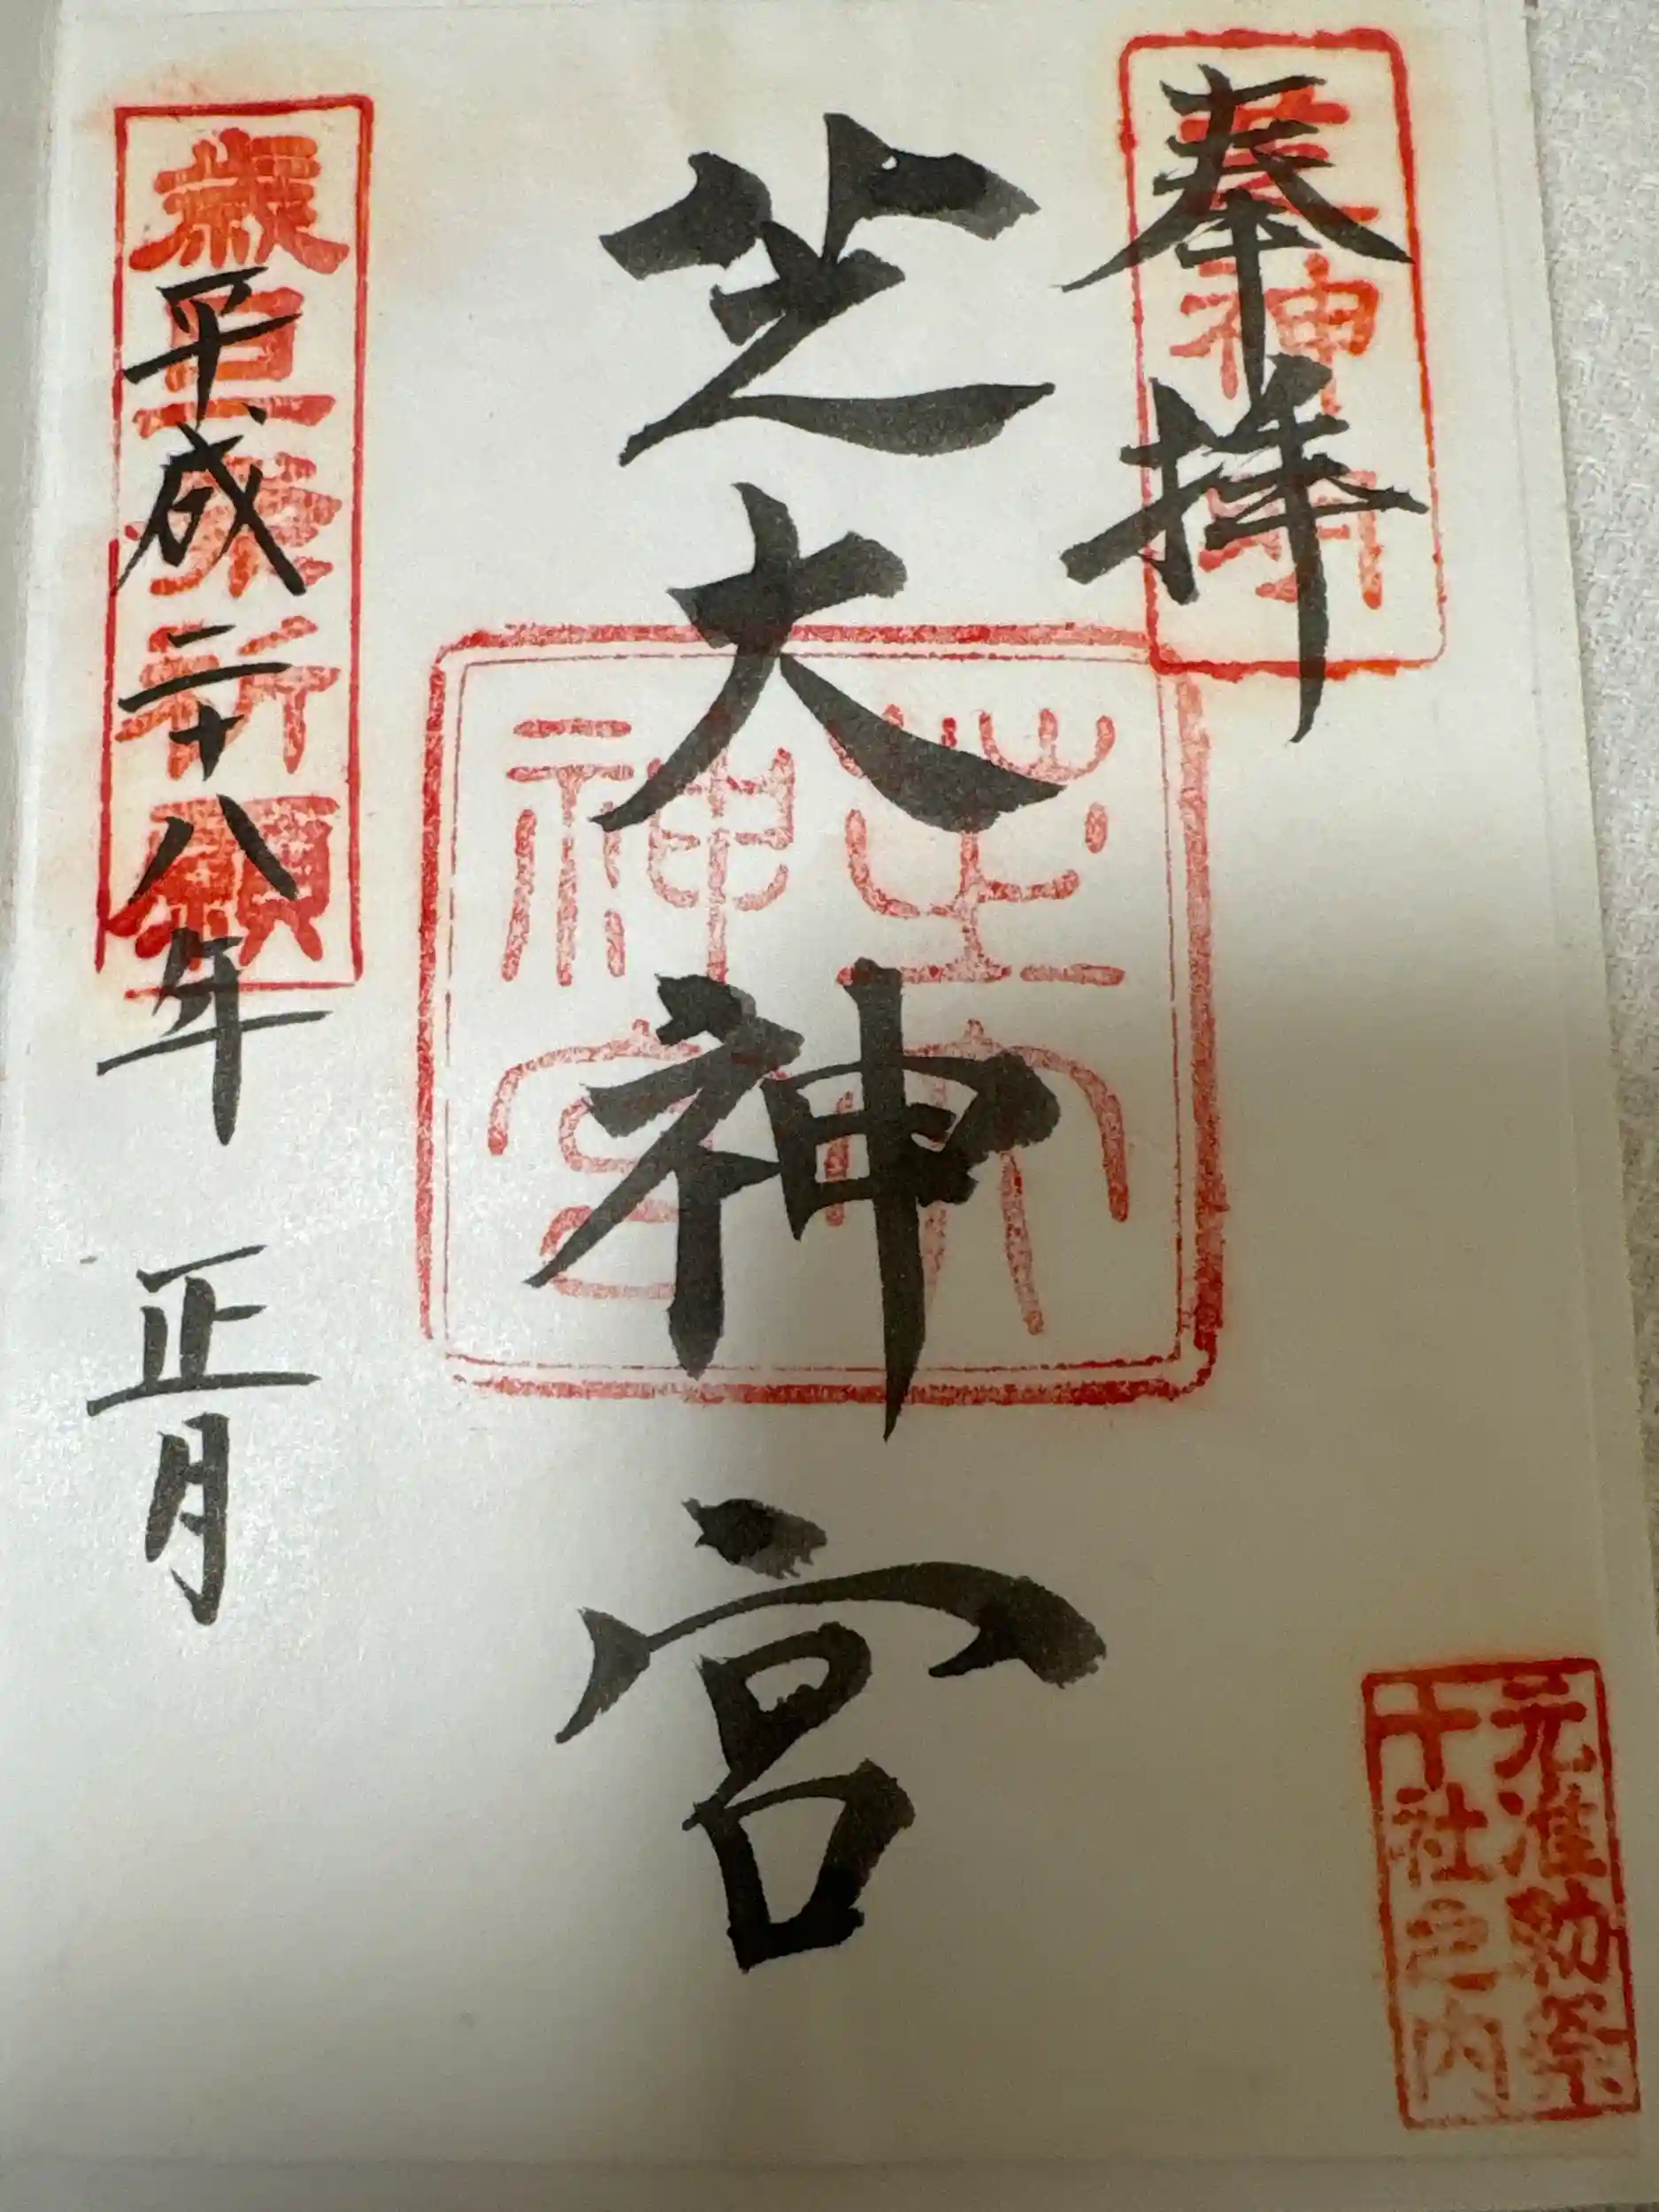 奉拝
元准勅祭
十社之内
芝大神宮
芝大
神宮
歳旦祭祈願
平成二十八年 正月